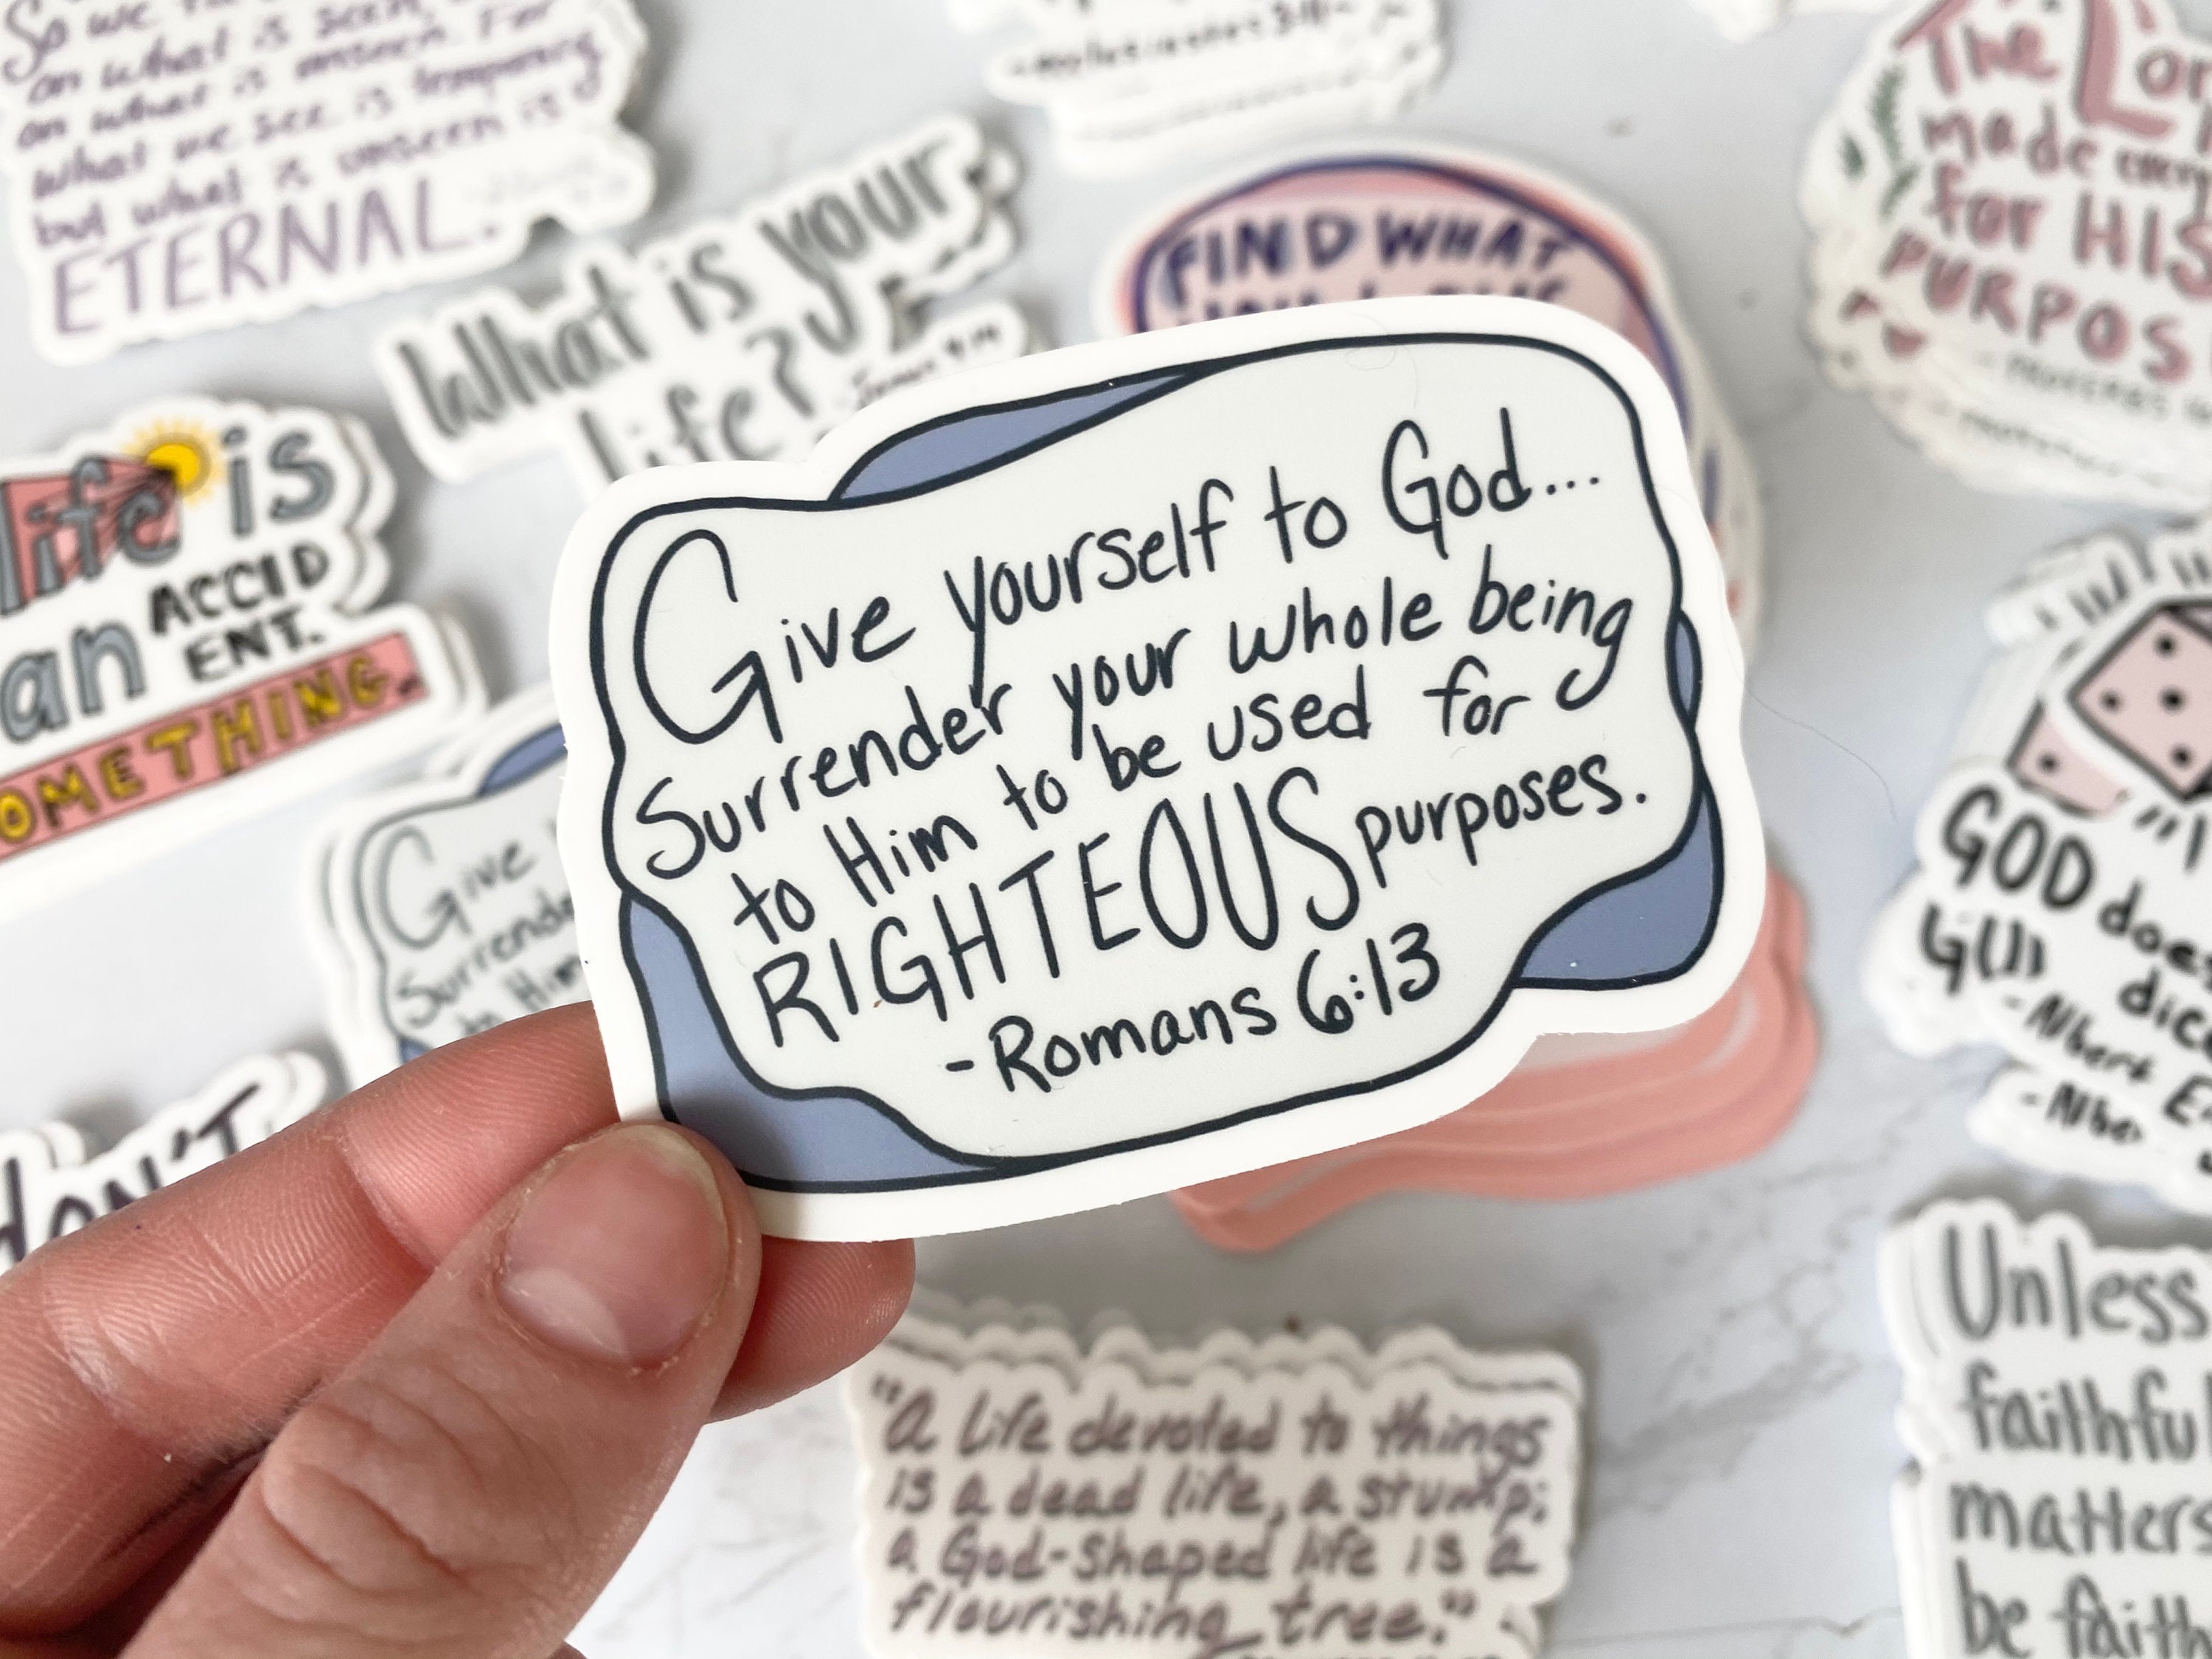 So we
on what is seen,
on what is unseen. For
what we see is temporary
but what is unseen is
ETERNAL.
What is your
life?
James 4:14
FIND WHAT
The Lor
made every
for HIS
PURPOS
- PROVERBS
life is
an ACCID
ENT.
OMETHING.
Give yourself to God...
Surrender your whole being
to Him to be used for
RIGHTEOUS purposes.
-Romans 6:13
Give
Surrende
to Him
GOD does
dice
-Albert E
DON'T
"A life devoted to things
is a dead life, a stump;
a God-shaped life is a
flourishing tree."
Unless
faithful
matters
be faith